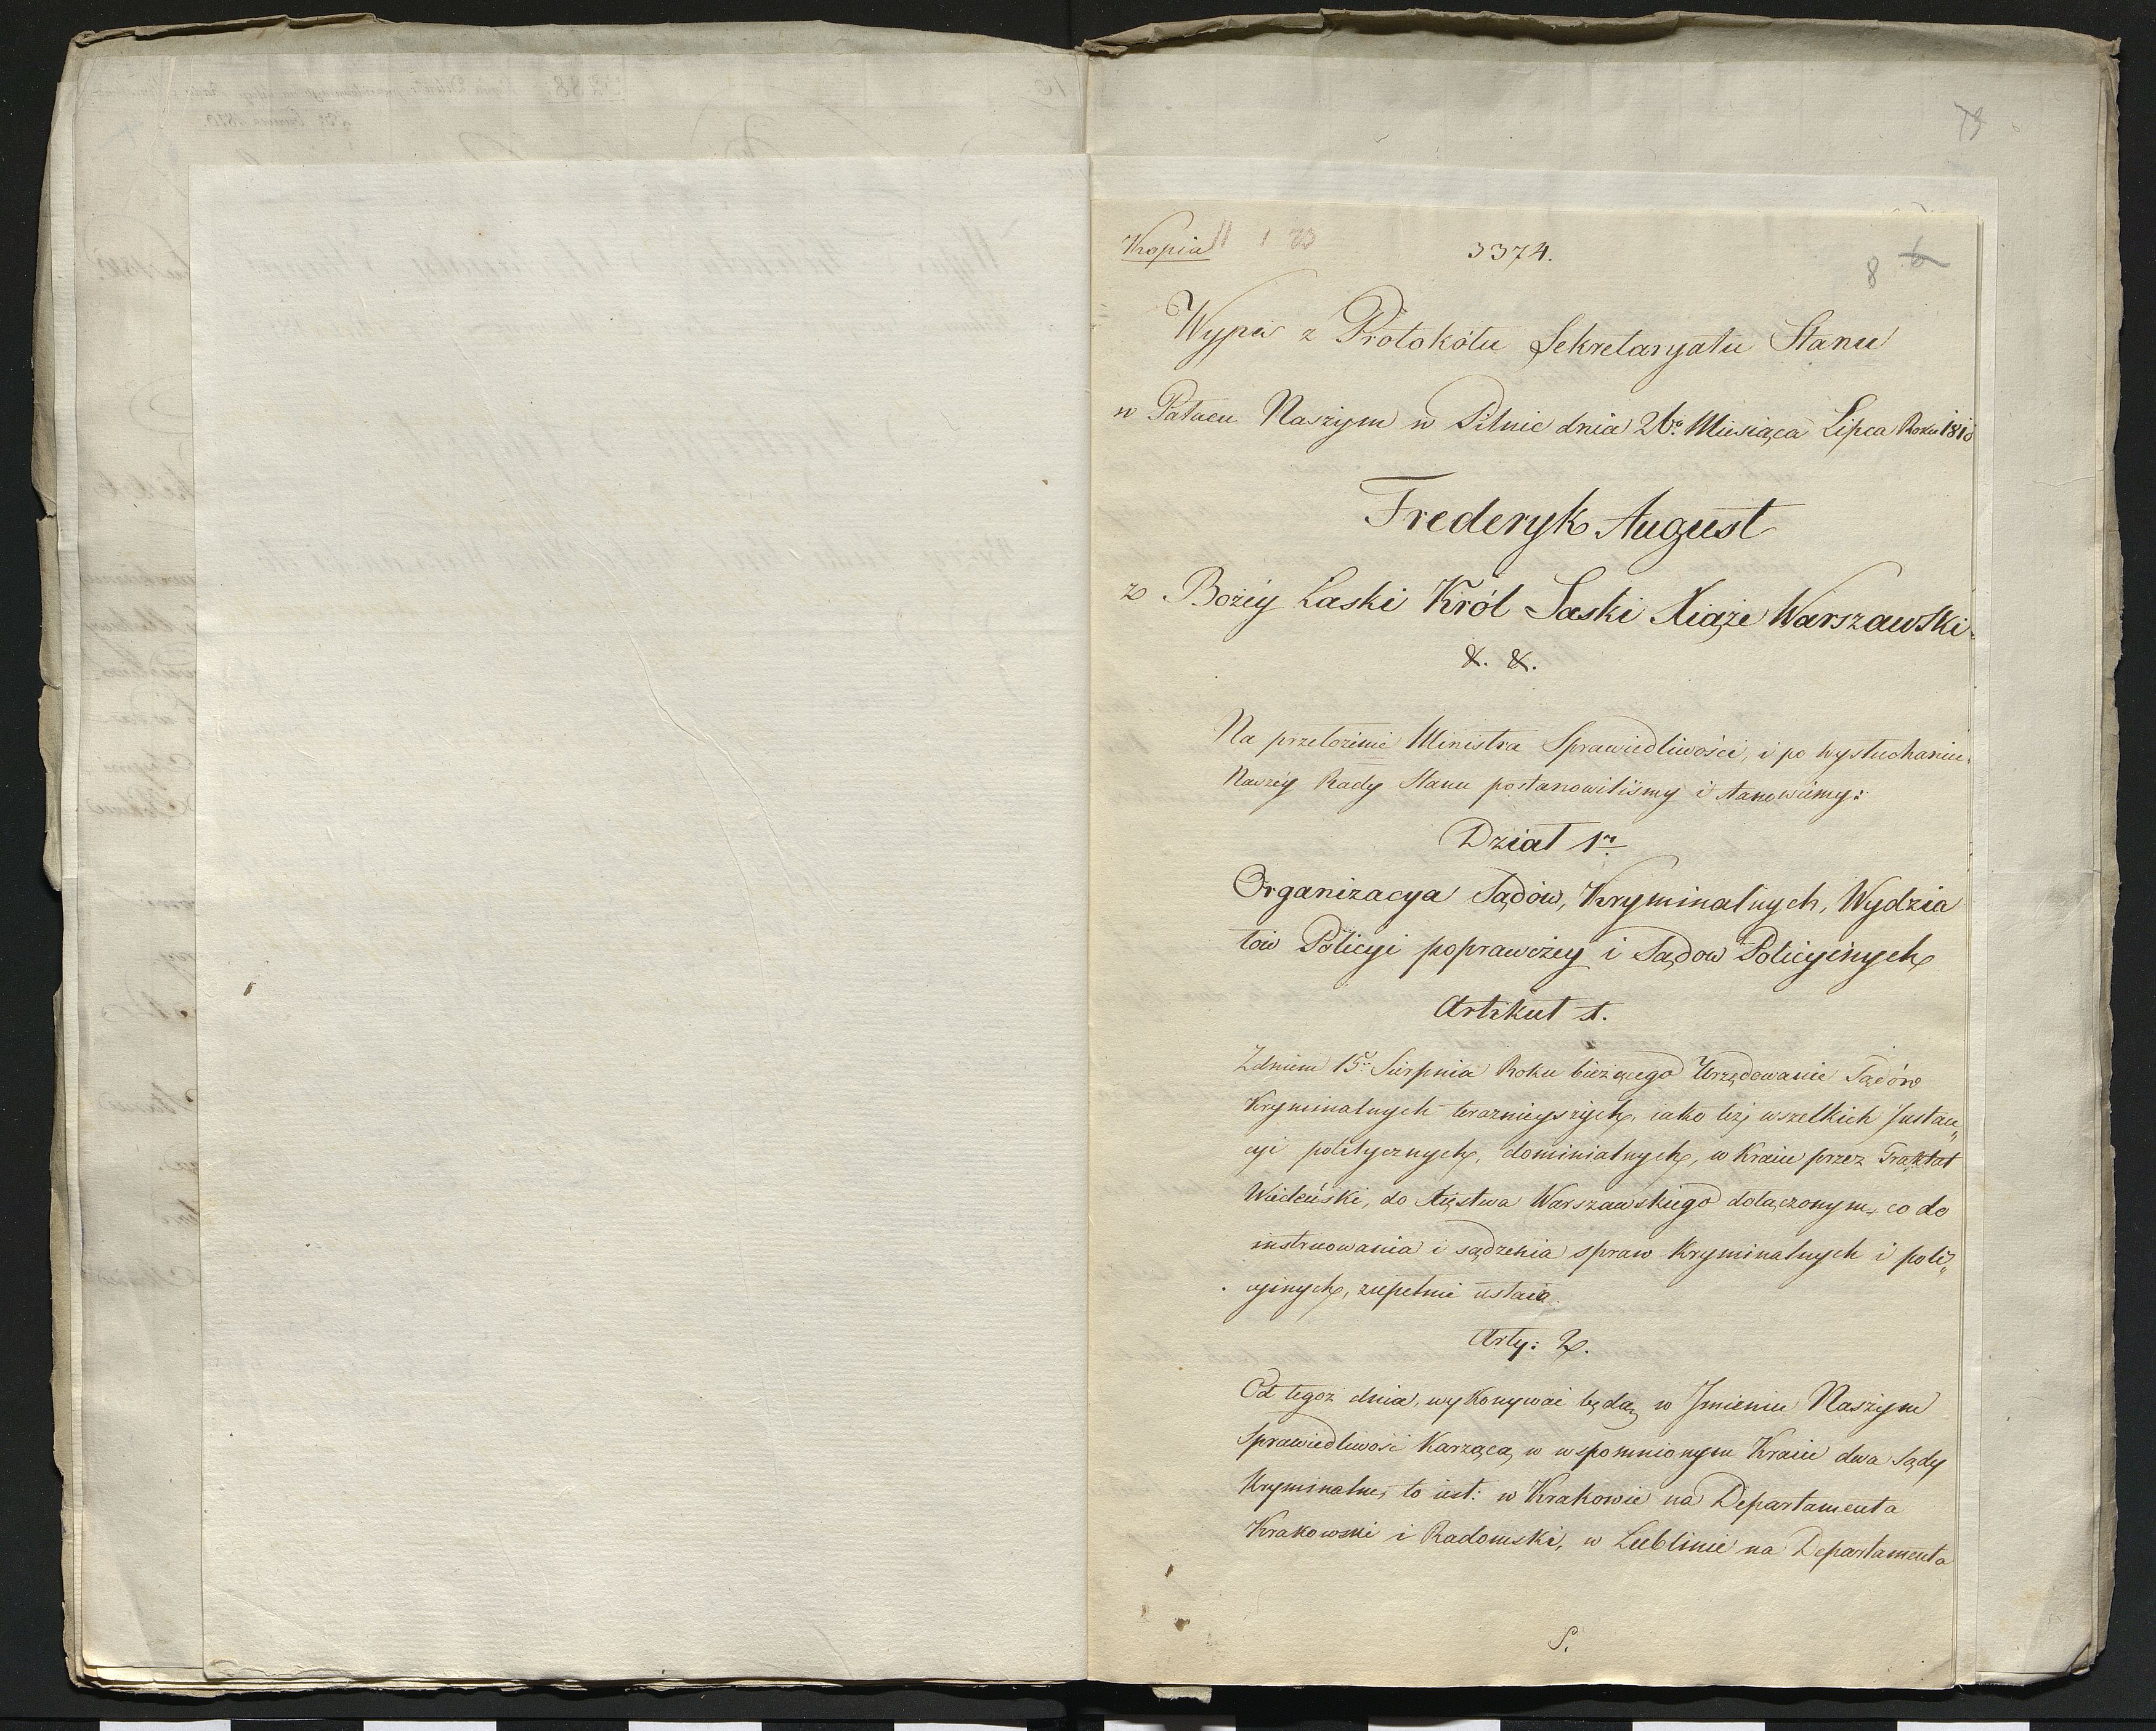 73
Kopia
3374.
8 6
Wypis z Protokółu Sekretaryatu Stanu
w Pałacu Naszym w Pilnic dnia 26º Miesiąca Lipca Roku 1810
Frederyk August
z Bożéy Łaski Król Saski Xiąże Warszawski
&. &.
Na przełożenie Ministra Sprawiedliwości, i po wysłuchaniu
Naszéy Rady Stanu postanowiliśmy i stanowiemy:
Dział 1º
Organizacya Sądów, Kryminalnych, Wydzia
łów Policyi poprawczéy i Sądow Policyinych
Artikuł 1.
Z dniem 15º Sierpnia Roku bieżącego Urzędowanie Sądów
Kryminalnych teraznieyszych, iako też wszelkich Instan„
cyi politycznych, dominialnych, w Kraiu przez Traktat
Wiedeński, do Xięstwa Warszawskiego dołączonym, co do
instruowania i sądzenia spraw Kryminalnych i poli„
cyinych, zupełnie ustaią.
Arty: 2.
Od tegoż dnia, wykonywać będą w Jmieniu Naszym
Sprawiedliwość Karzącą, w wspomnionym Kraiu dwa Sądy
Kryminalne, to iest: w Krakowie na Departamenta
Krakowski i Radomski, w Lublinie na Departamenta
S.